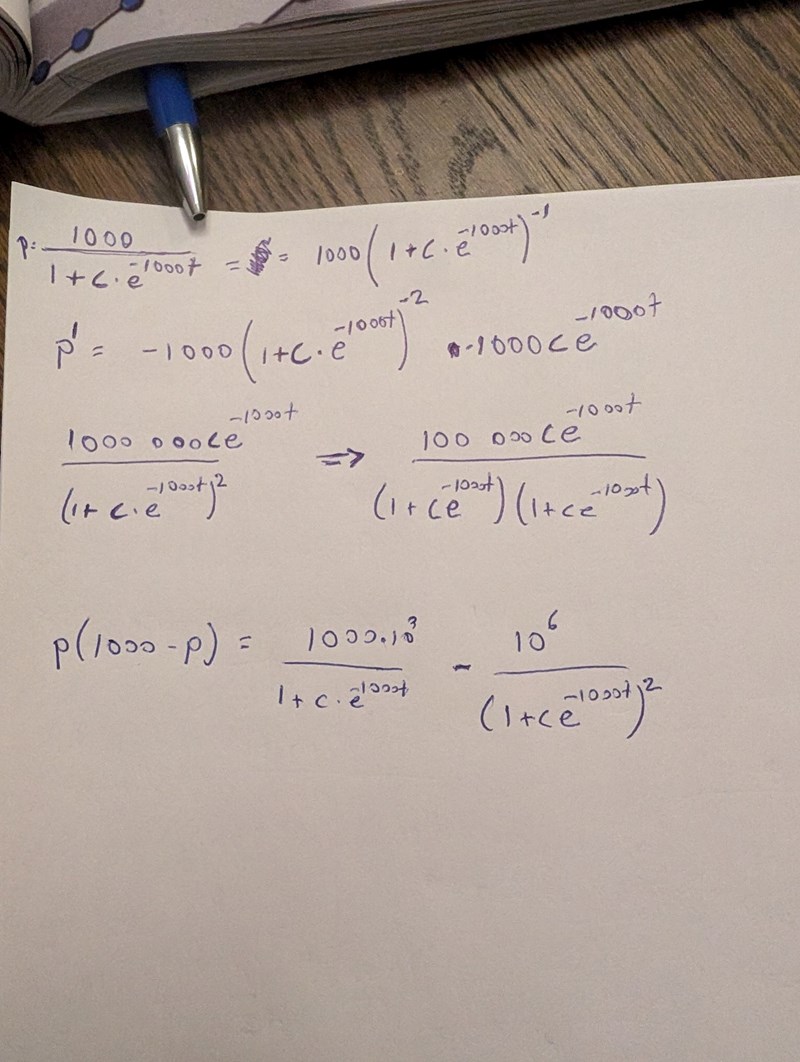 p = 1000 / (1 + c · e^(-1000t)) = = 1000 (1 + c · e^(-1000t))^(-1)
p' = -1000 (1 + c · e^(-1000t))^(-2) · -1000 c e^(-1000t)
1000 000 c e^(-1000t) / (1 + c · e^(-1000t))^2 => 100 000 c e^(-1000t) / (1 + c e^(-1000t)) (1 + c e^(-1000t))
p(1000 - p) = 1000 · 10^3 / (1 + c · e^(-1000t)) - 10^6 / (1 + c e^(-1000t))^2